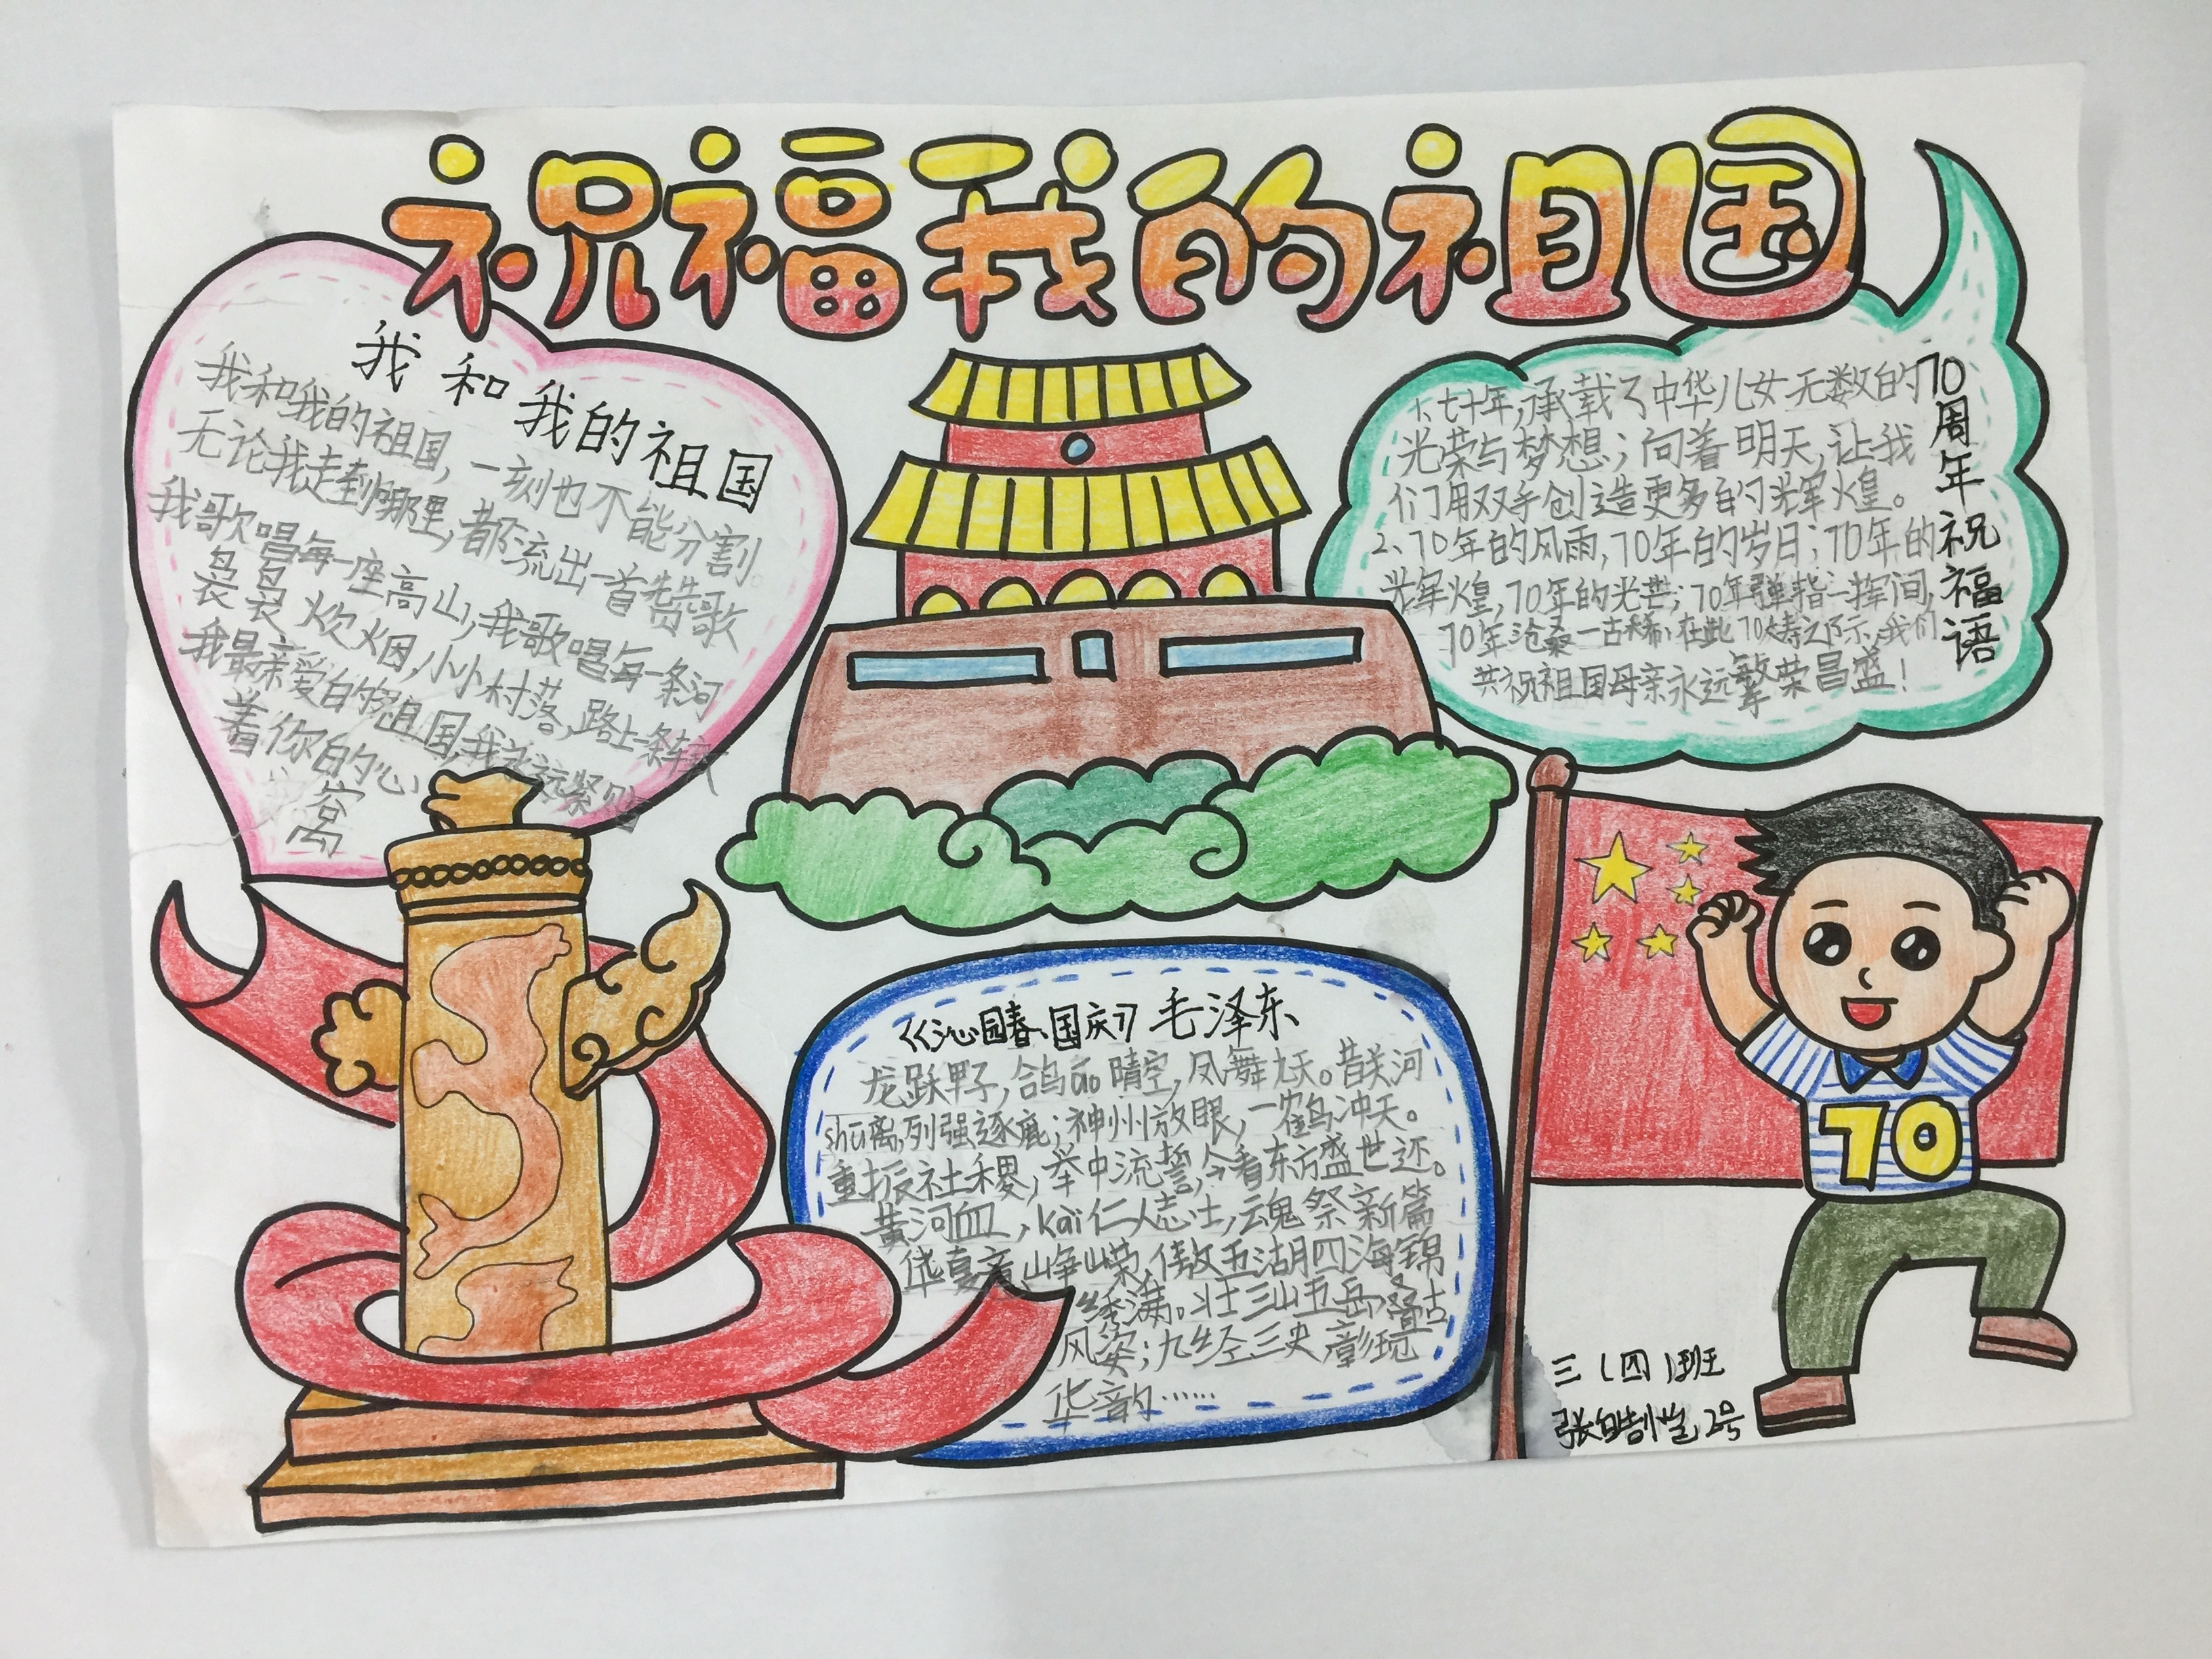 祝福我的祖国
我和我的祖国
我和我的祖国,一刻也不能分割。
无论我走到哪里,都流出一首赞歌
我歌唱每一座高山,我歌唱每一条河
袅袅炊烟,小小村落,路上一条车大
我最亲爱的祖国,我永远紧
着你的心
窝
70周年祝福语
1、七十年,承载了中华儿女无数的
光荣与梦想;向着明天,让我
们用双手创造更多的辉煌。
2、70年的风雨,70年的岁月;70年的
辉煌,70年的光芒;70年弹指一挥间,
70年沧桑一古稀;在此70大寿之际,我们
共祝祖国母亲永远繁荣昌盛!
《沁园春、国庆》毛泽东
龙跃甲子,鸽áo晴空,凤舞九天。昔关河
shū离,列强逐鹿;神州放眼,一鹤冲天。
重振社稷,举中流誓,今看东方盛世还。
黄河血,kǎi仁人志士,魂祭新篇
华夏意峥嵘,傲五湖四海锦
绣满。壮三山五岳,叠古
风姿;九经三史,彰现
华韵……
70
三(四)班
张 2号